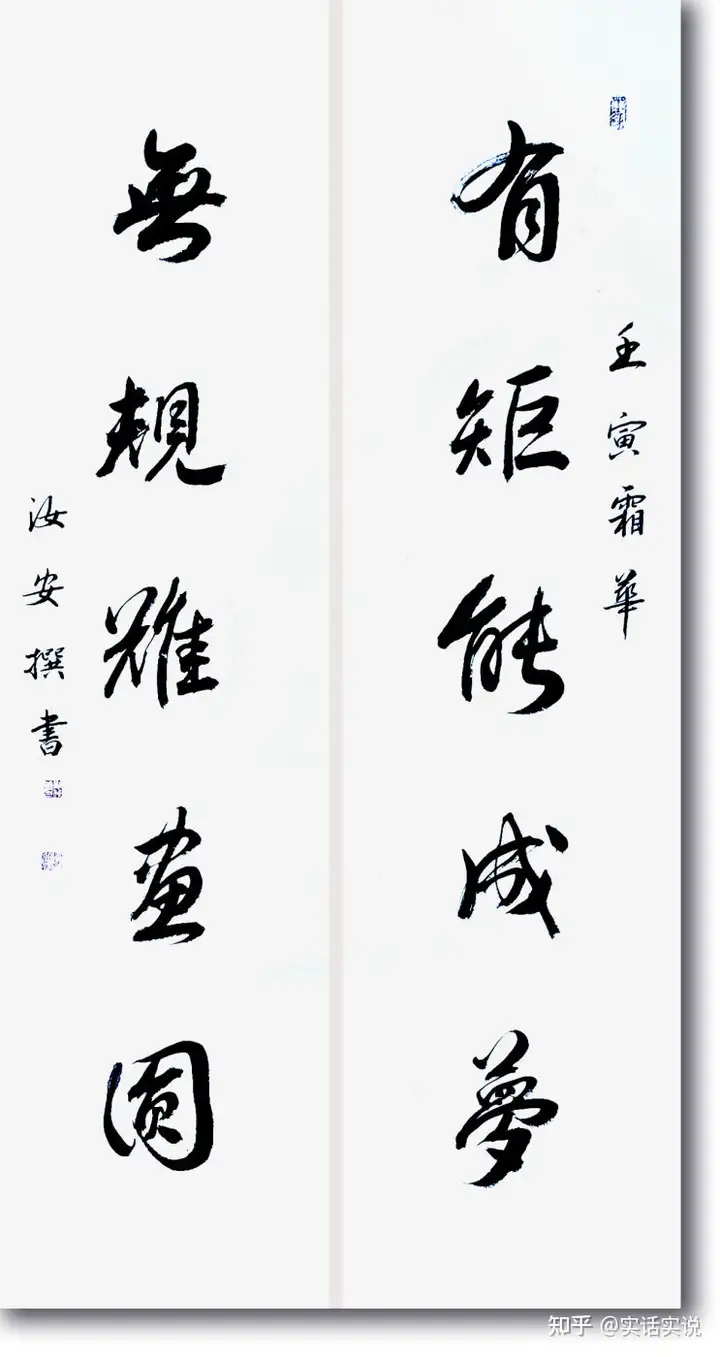 壬寅霜華
有矩能成夢
無規難畫圓
汝安撰書
知乎 @实话实说